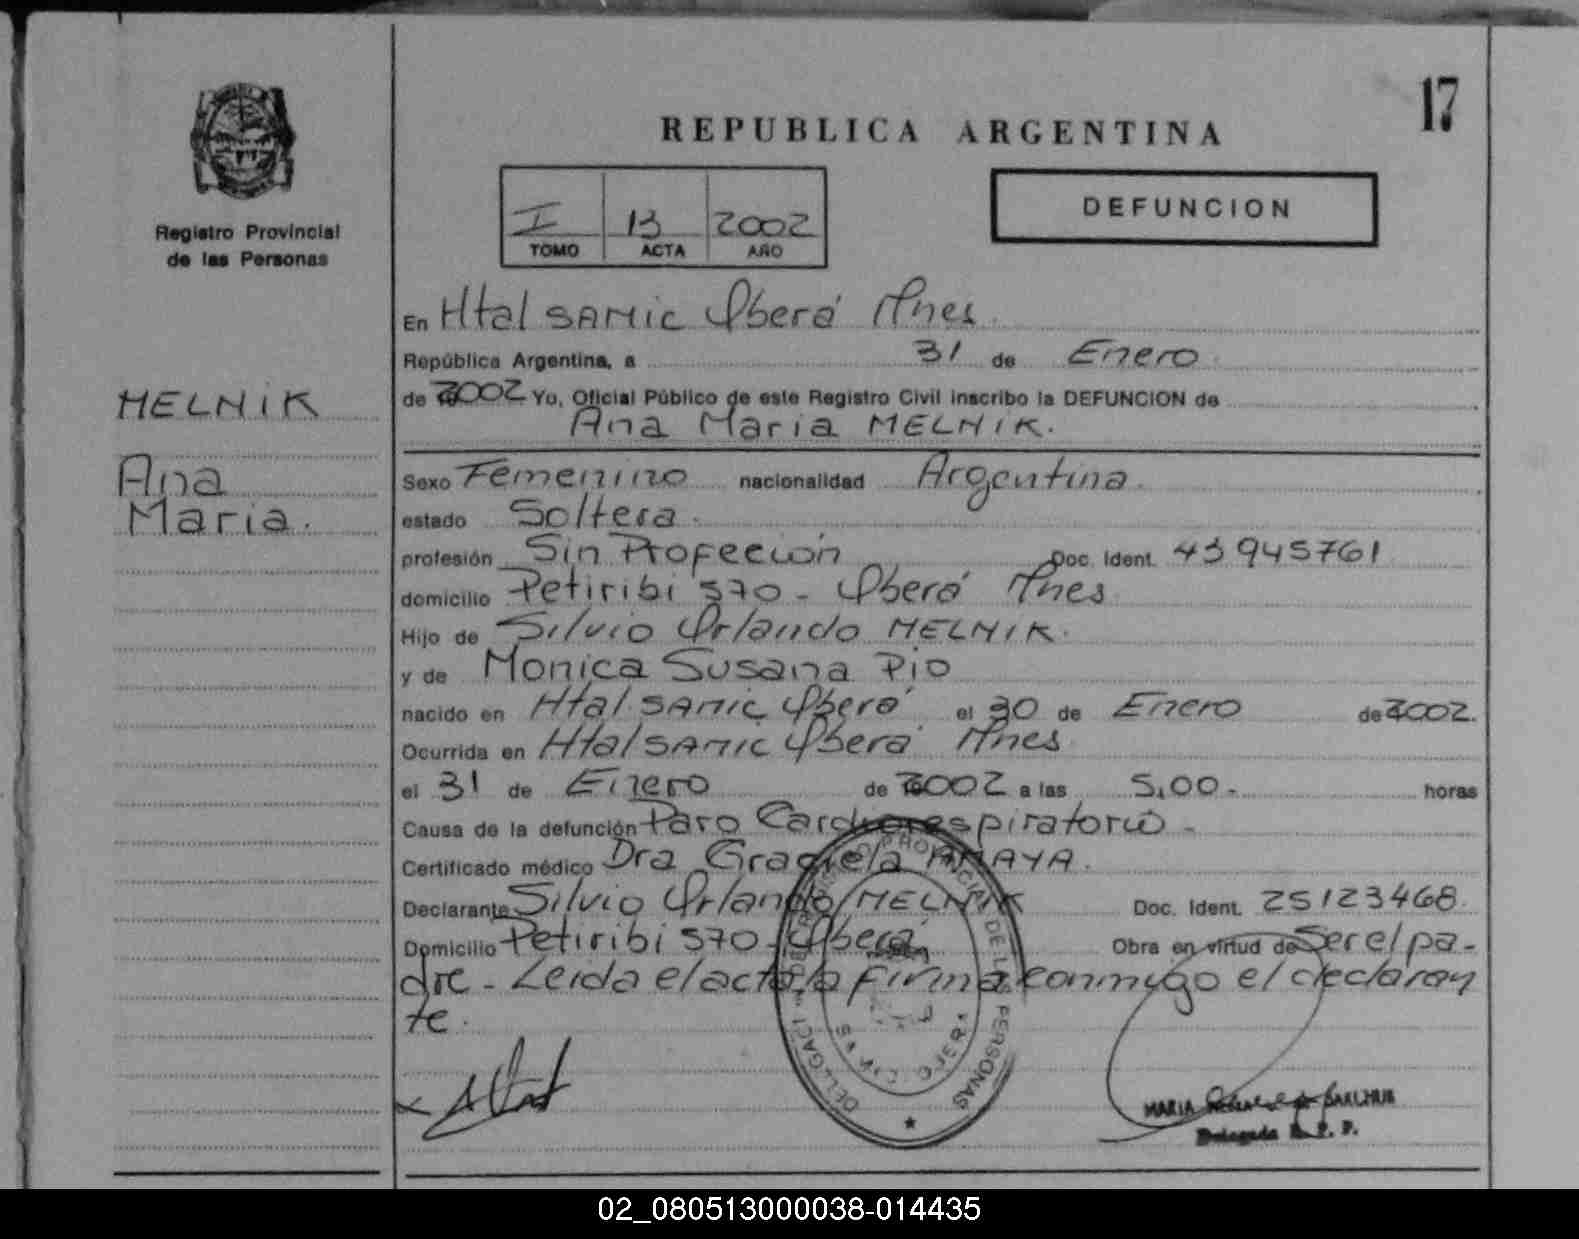 17
REPUBLICA ARGENTINA
Registro Provincial
de las Personas
I 13 2002
TOMO ACTA AÑO
DEFUNCION
En Htal SAMIC Oberá Mnes.
República Argentina, a 31 de Enero.
de 2002 Yo, Oficial Público de este Registro Civil inscribo la DEFUNCION de
Ana Maria MELNIK.
MELNIK
Ana
Maria.
Sexo Femenino nacionalidad Argentina.
estado Soltera.
profesión Sin Profeción Doc. Ident. 43945761
domicilio Petiribi 570 - Oberá Mnes
Hijo de Silvio Orlando MELNIK.
y de Monica Susana Pio
nacido en Htal. SAMIC Oberá el 30 de Enero de 2002.
Ocurrida en Htal SAMIC Oberá Mnes
el 31 de Enero de 2002 a las 5,00.- horas
Causa de la defunción Paro Cardiorespiratorio -
Certificado médico Dra Graciela AMAYA.
Declarante Silvio Orlando MELNIK Doc. Ident. 25123468.
Domicilio Petiribi 570 - Oberá Obra en virtud de Ser el pa-
dre - Leida el acta la firma conmigo el declaran
te.
REGISTRO PROVINCIAL DE LAS PERSONAS
MARIA
Delegada R. P. P.
02_080513000038-014435